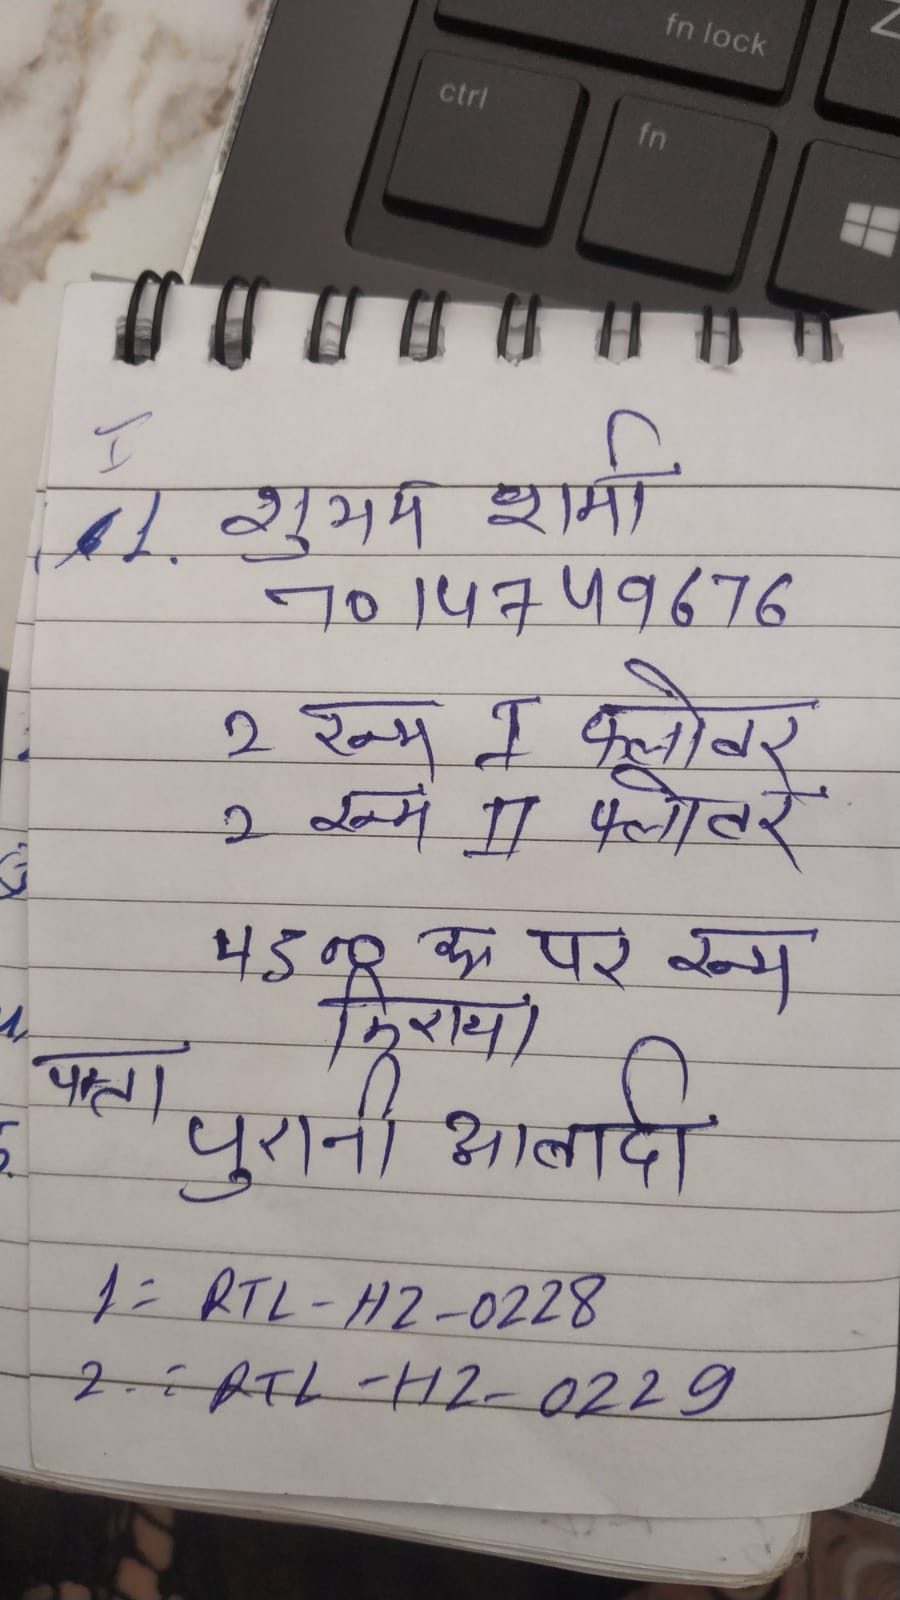 fn lock
ctrl
fn
I
1. शुभम शर्मा
7014749676
2 रूम I फ्लोवर
2 रूम II फ्लोवर
4500 रू पर रूम
किराया
पता
पुरानी आबादी
1= RTL-H2-0228
2.= RTL-H2-0229